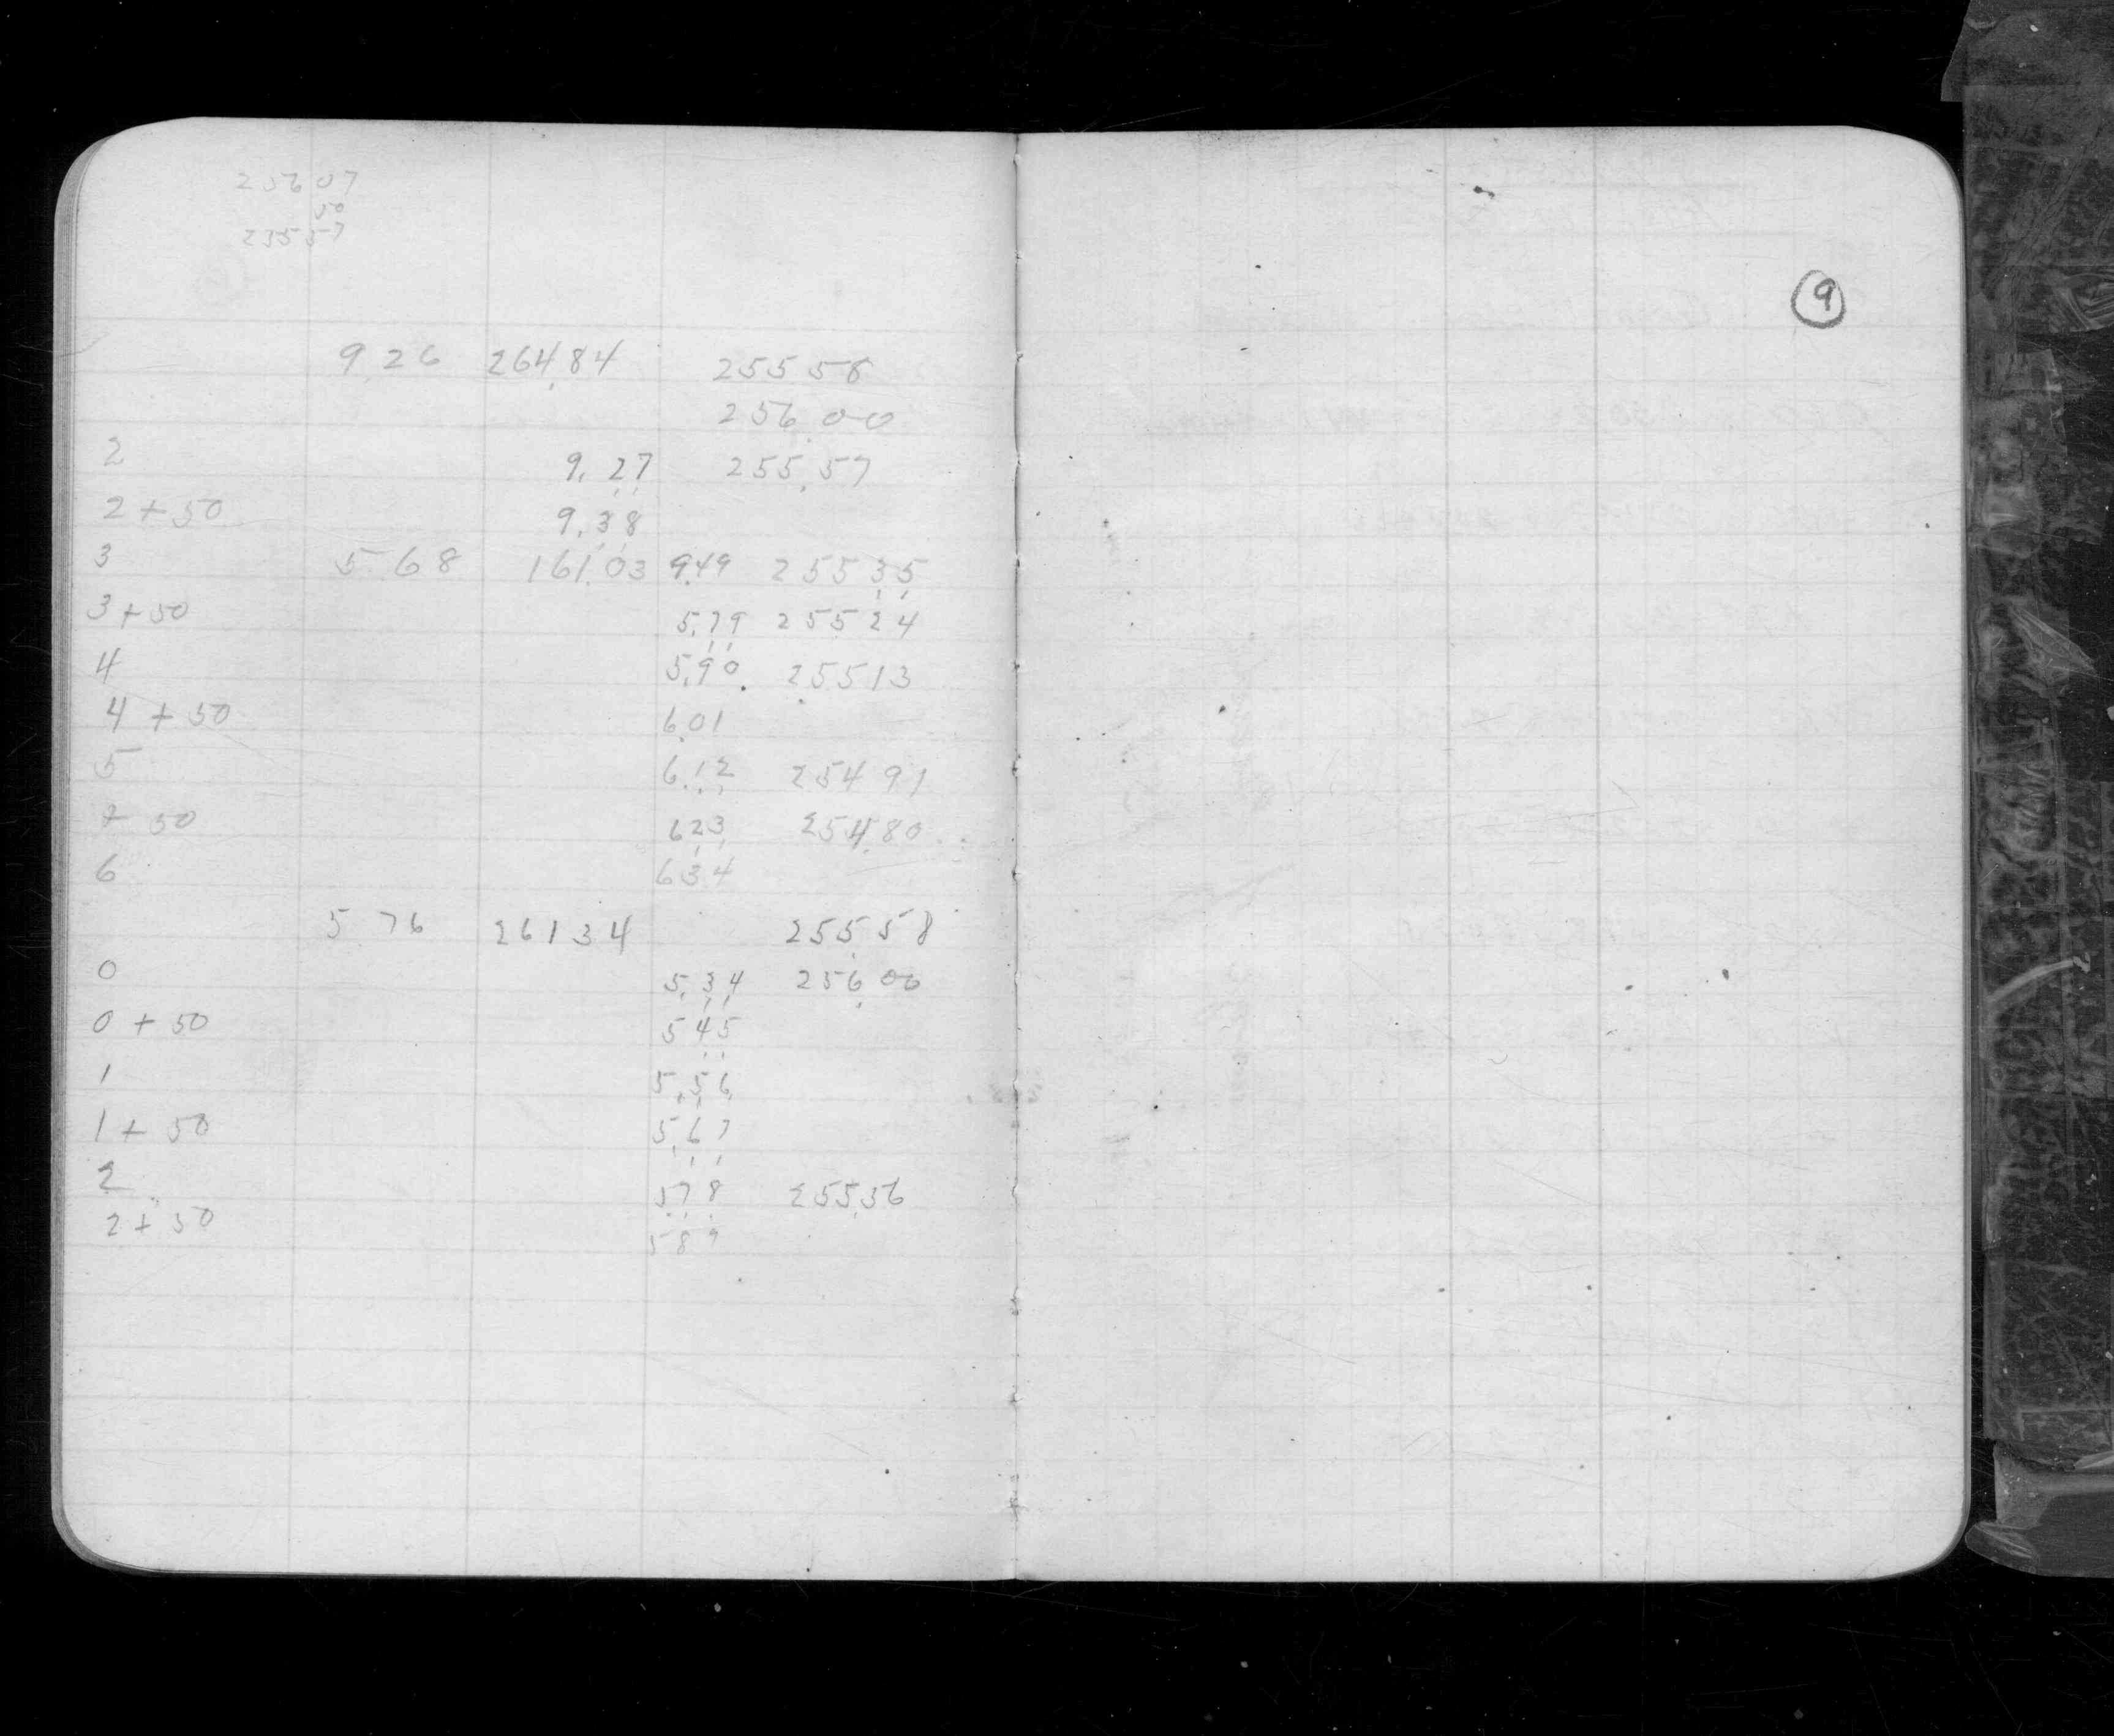 256 07
50
255 57
9.26 264.84 255 58
256.00
2 9.27 255.57
2 + 50 9.38
3 5.68 161.03 9.49 255 35
3 + 50 5.79 255 24
4 5.90 255 13
4 + 50 6.01
5 6.12 254 91
+ 50 6 23 254.80
6 6 34
5 76 261 34 255.58
0 5.34 256.00
0 + 50 5 45
1 5.56
1 + 50 5.67
2 5 78 255.56
2 + 50 5 89
9